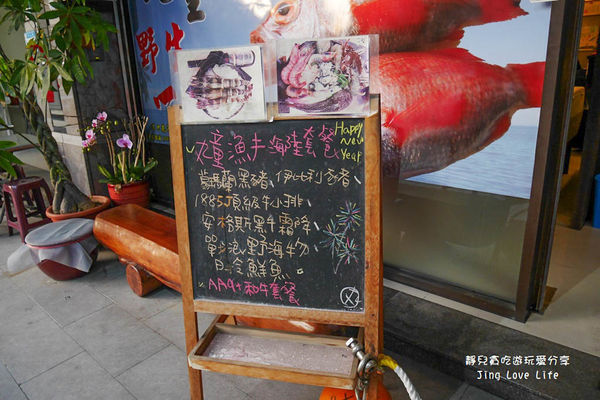 野生
漁夫海陸套餐
Happy
New
Year
葛蘭黑豬、伊比利子豬
1885頂級牛小排、
安格斯黑牛霜降、
野海物、
日冷鮮魚。
AA9+和牛套餐
靜兒貪吃遊玩愛分享
Jing Love Life